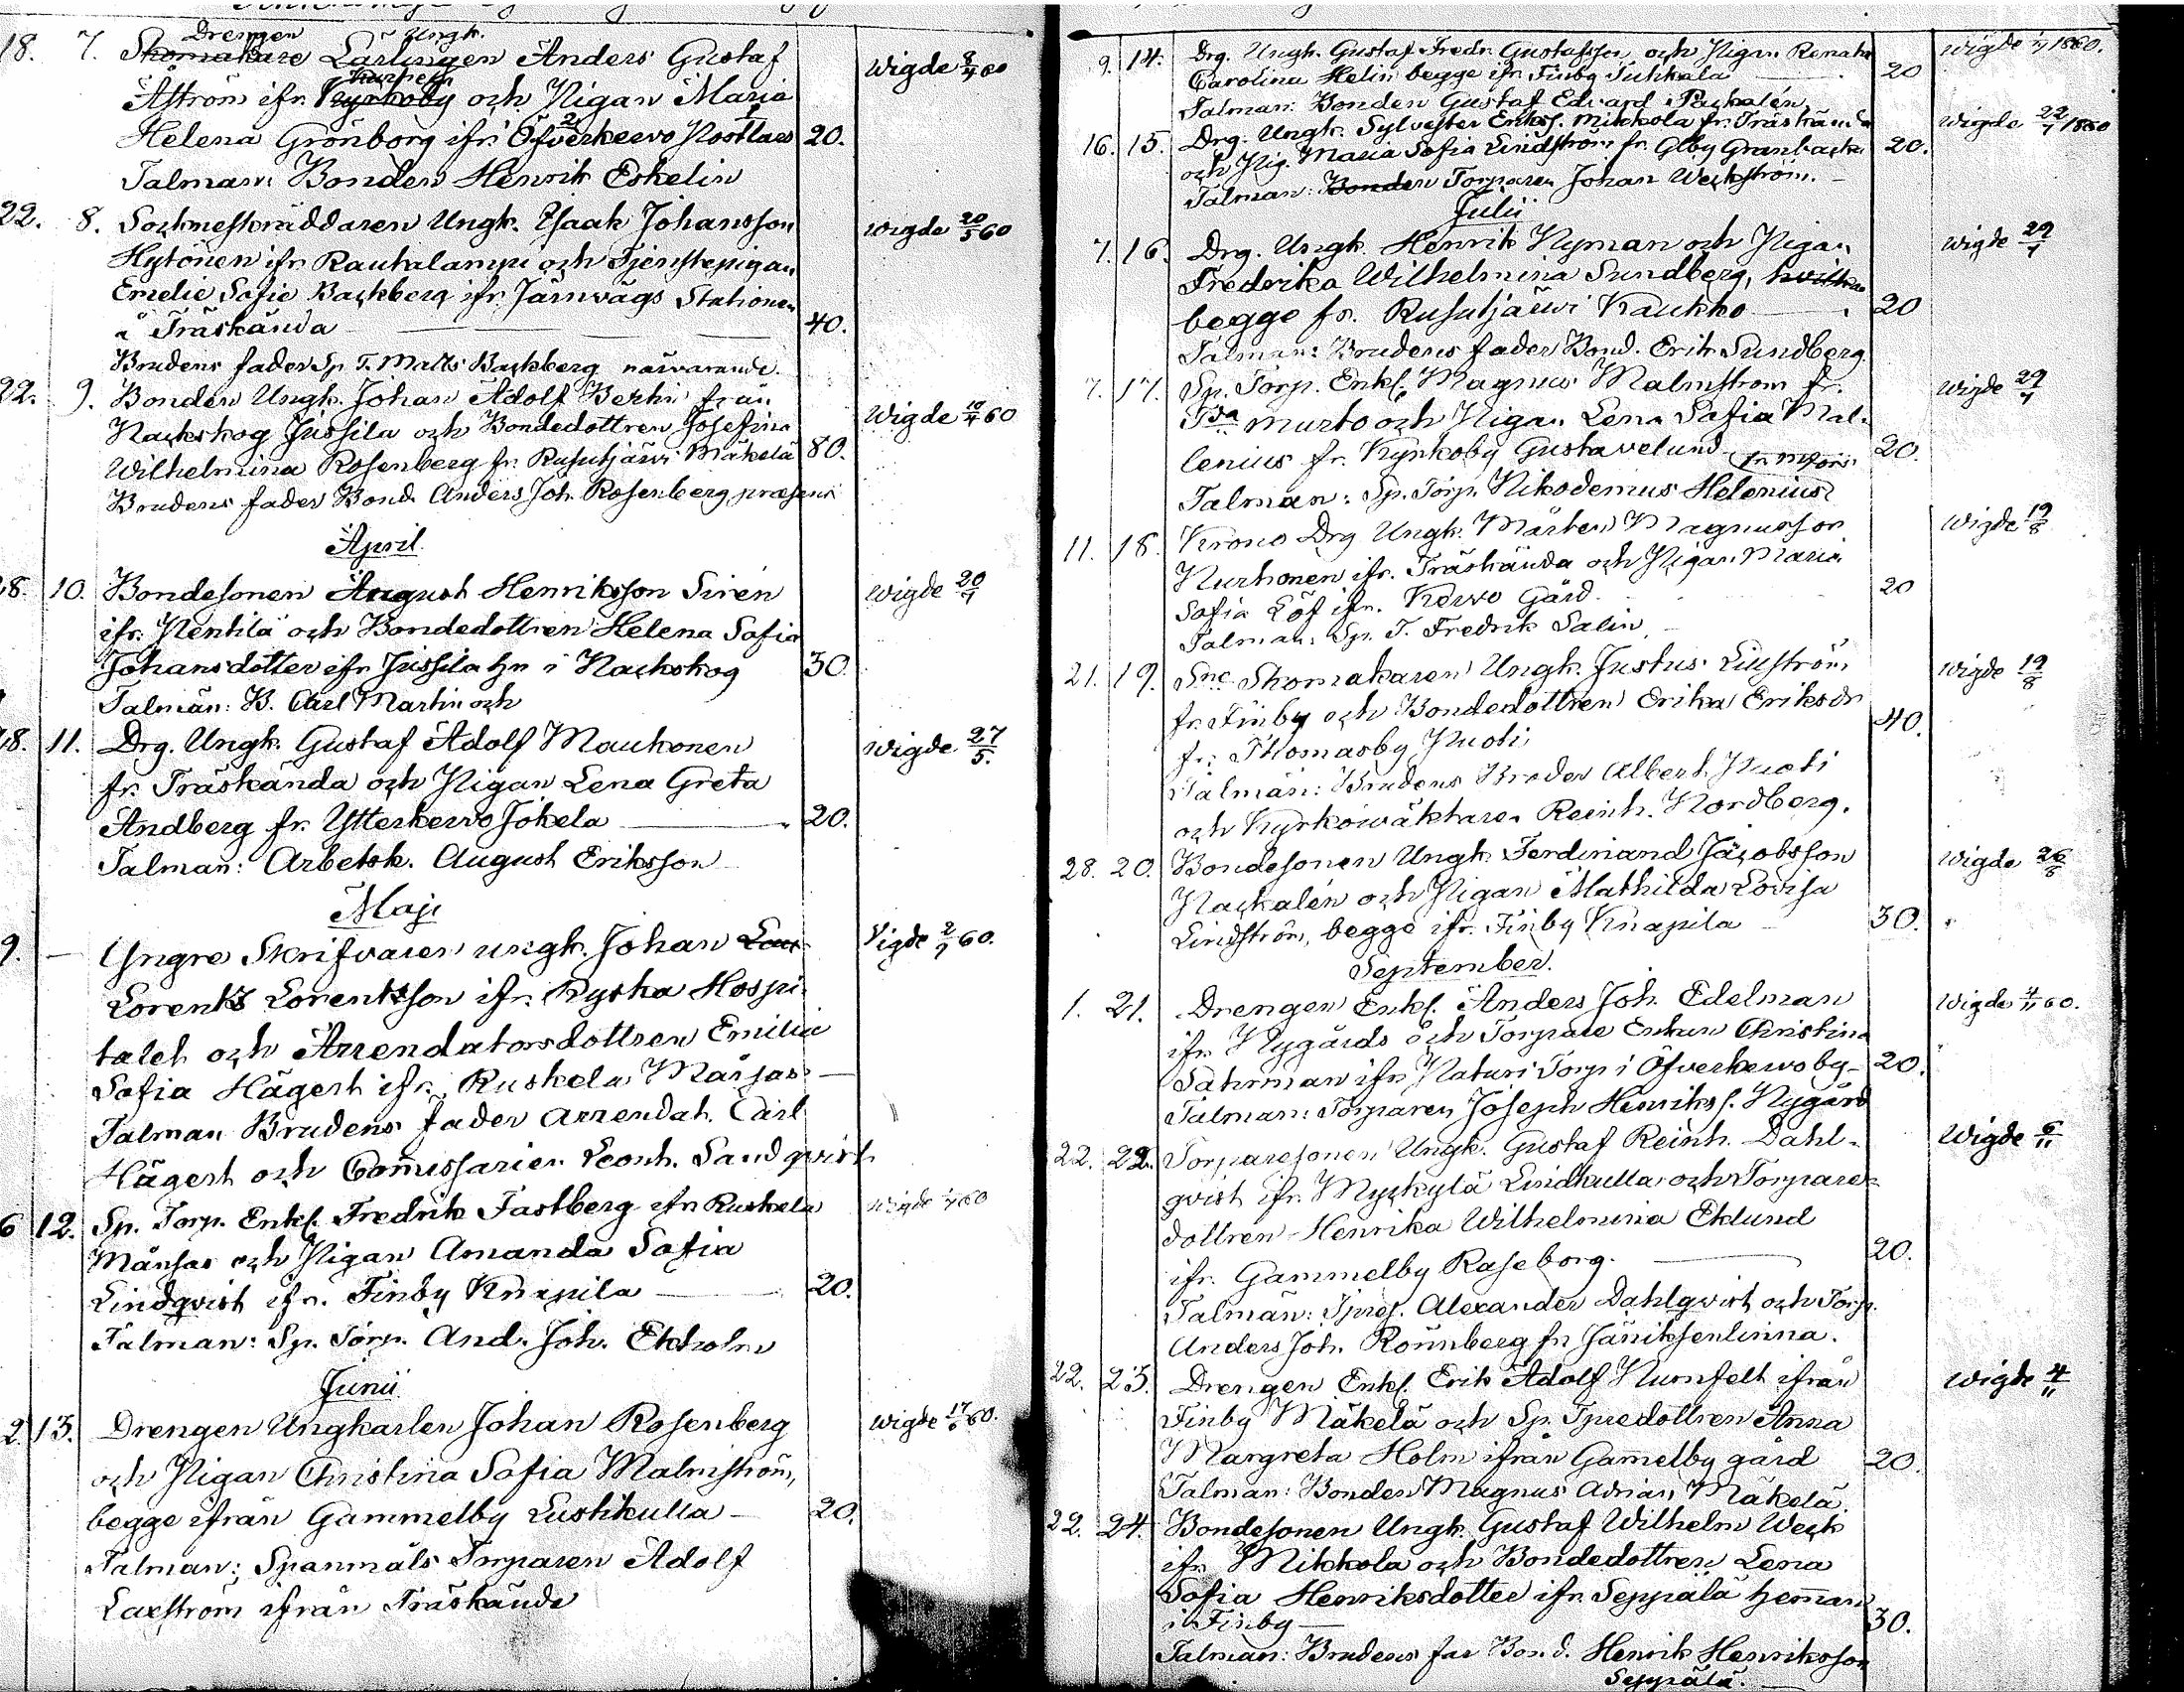 Drengen Ungk.
18. 7. Skomakare Lärlingen Anders Gustaf Wigde 9/4 60
Åström ifr. Kyrkoby och Pigan Maria
Helena Grönborg ifr. Öfverkervo Postlars 20.
Talman: Bonden Henrik Eskelin
22. 8. Sockneskräddaren Ungk. Isaak Johansson wigde 20/5 60
Hytönen ifr. Rautalampi och Tjenstepigan
Emelie Sofie Backberg ifr. Järnvägs Stationen
å Träskända 40.
Brudens fader Sp. T. Matts Backberg närvarande.
22. 9. Bonden Ungk. Johan Adolf Berlin från Wigde 10/4 60
Nackskog Jussila och Bondedottren Josefina
Wilhelmina Rosenberg fr. Rusutjärvi Mäkelä 80.
Brudens fader Bond. Anders Joh. Rosenberg præsens
April.
18. 10. Bondesonen August Henriksson Sirén wigde 20/4
ifr. Pentilä och Bondedottren Helena Sofia
Johansdotter ifr. Jussila hn i Nackskog 30.
Talmän: B. Carl Martin och
18. 11. Drg. Ungk. Gustaf Adolf Maukonen wigde 27/5.
fr. Träskända och Pigan Lena Greta
Andberg fr. Ytterkervo Jokela 20.
Talman: Arbetsk. August Eriksson
Maji
9. — Yngre Skrifvaren ungk. Johan Vigde 2/7 60.
Lorents Lorentsson ifr. Ryska Hospi-
talet och Arrendatorsdottren Emilia
Sofia Hägert ifr. Ruskela Månsas —
Talman Brudens fader Arrendat. Carl
Hägert och Commissarien Leonh. Sandqvist
6 12. Sp. Torp. Enkl. Fredrik Fastberg ifr. Ruskela wigde 1/7 60
Månsas och Pigan Amanda Sofia
Lindqvist ifr. Finby Knapila 20.
Talman: Sp. Torp. And. Joh. Ekholm
Junii
2. 13. Drengen Ungkarlen Johan Rosenberg wigde 17/6 60.
och Pigan Christina Sofia Malmström,
begge ifrån Gammelby Lustikulla — 20.
Talman: Spanmåls Torparen Adolf
Laxström ifrån Träskända
9. 14. Drg. Ungk. Gustaf Fredr. Gustafsson och Pigan Renata wigde 1/7 1860.
Carolina Helin begge ifr. Finby Tuhkala 20
Talman: Bonden Gustaf Edvard Packalén
16. 15. Drg. Ungk. Sylvester Erikss. Mikkola fr. Träskända wigde 22/7 1860
och Pig. Maria Sofia Lindström fr. Olby Granbacka 20.
Talman: Bonden Torparen Johan Weckström.
Julii
7. 16. Drg. Ungk. Henrik Nyman och Pigan wigde 29/7
Fredrika Wilhelmina Sundberg, hvilka
begge fr. Rusutjärvi Kaukko 20
Talman: Brudens fader Bond. Erik Sundberg.
7. 17. Sp. Torp. Enkl. Magnus Malmström fr. wigde 29/7
murto och Pigan Lena Sofia Mal-
lenius fr. Kyrkoby Gustavelund 20.
Talman: Sp. Torp. Nikodemus Helenius
11. 18. Krono Drg Ungk. Mårten Magnusson wigde 19/8
Nurhonen ifr. Träskända och Pigan Maria
Sofia Löf ifr. Kervo Gård. 20
Talman: Sp. T. Fredrik Salin
21. 19. Sne Skomakaren Ungk. Justus Liuström wigde 19/8
fr. Finby och Bondedottren Erika Eriksdr
fr. Thomasby Nuoti 40.
Talmän: Brudens Broder Albert Nuoti
och Kyrkowäktaren Reinh. Nordberg.
28. 20. Bondesonen Ungk. Ferdinand Jacobsson wigde 26/8
Packalén och Pigan Mathilda Lovisa
Lindström, begge ifr. Finby Knapila 30.
September.
1. 21. Drengen Enkl. Anders Joh. Edelman wigde 4/11 60.
ifr. Nygårds och Torpare Enkan Christina
Sahrman ifr. Naturi Torp i Öfverkervo by — 20.
Talman: Torparen Joseph Henrikss. Nygård
22. 22. Torparesonen Ungk. Gustaf Reinh. Dahl- Wigde 6/11
qvist ifr. Myckylä Lindkulla och Torpare-
dottren Henrika Wilhelmina Eklund
ifr. Gammelby Raseborg. 20.
Talmän: Alexander Dahlqvist och Torp.
Anders Joh. Rönnberg fr. Jäniksenlinna.
22. 23. Drengen Enkl. Erik Adolf Kumfelt ifrån wigde 4/11
Finby Mäkelä och Sp. Tpredottren Anna
Margreta Holm ifrån Gamelby gård 20.
Talman: Bonden Magnus Adrian Mäkelä
22. 24. Bondesonen Ungk. Gustaf Wilhelm Weck
ifr. Mikkola och Bondedottren Lena
Sofia Henriksdotter ifr. Seppälä heman
i Finby — 30.
Talman: Brudens far Bond. Henrik Henriksson
Seppälä.